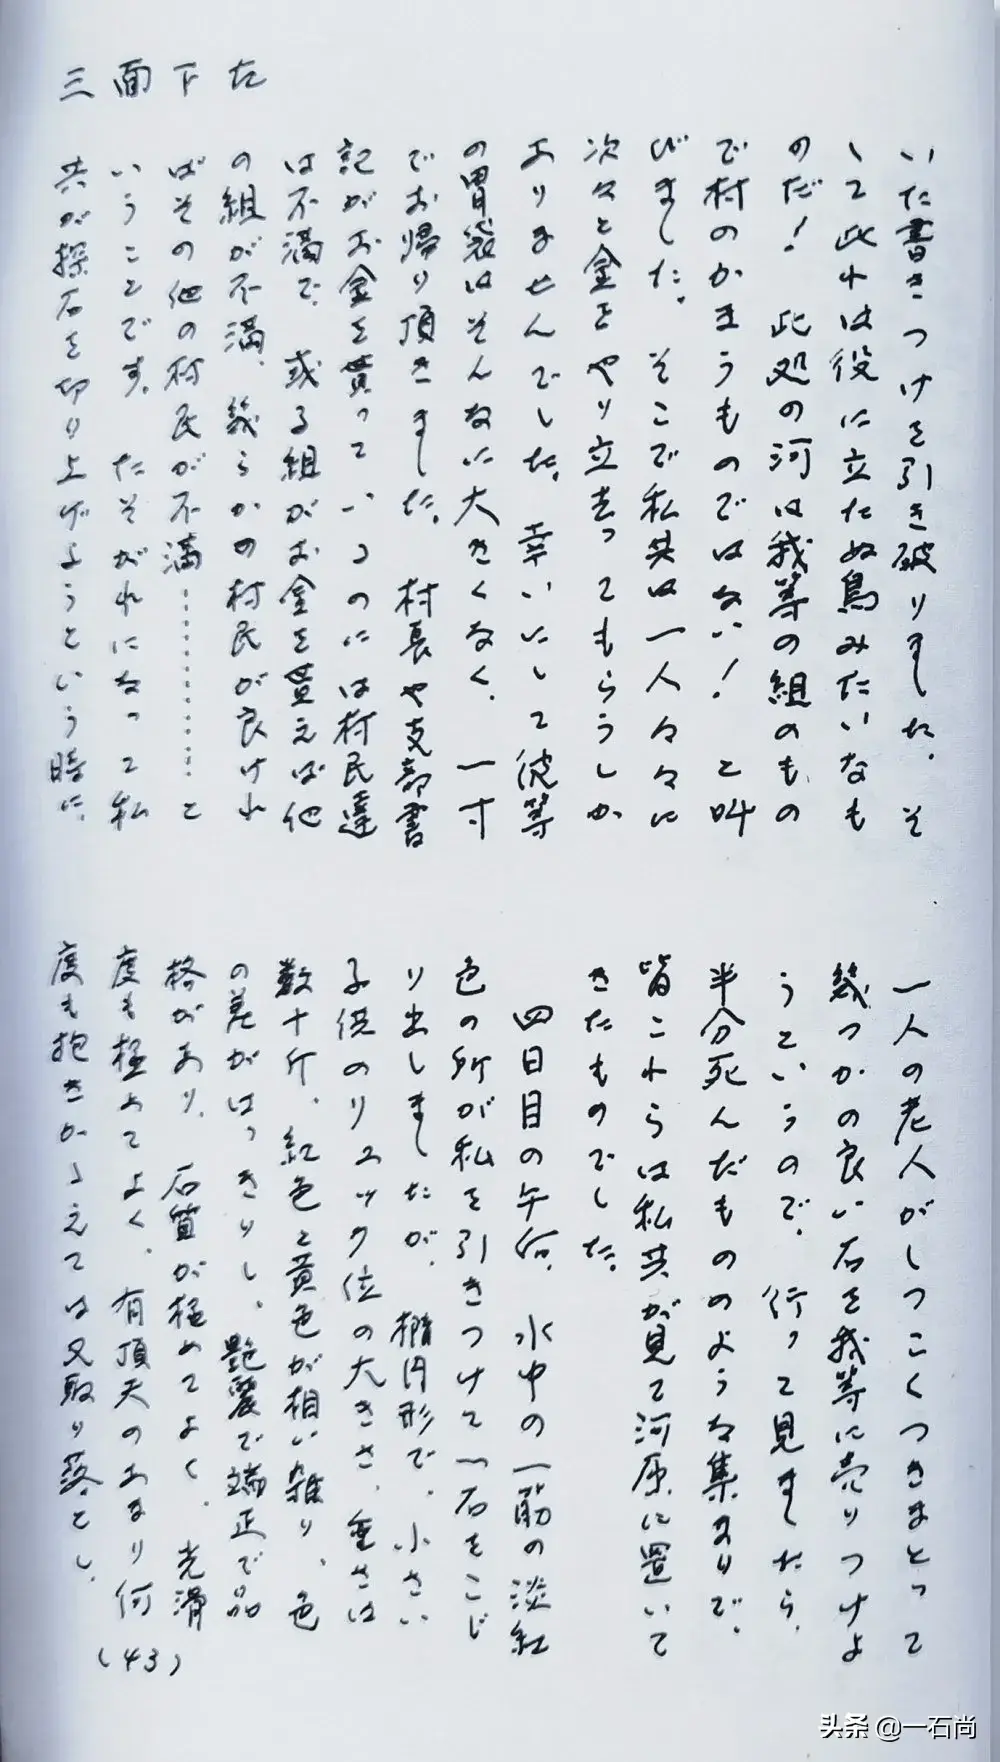 いた書きつけを引き破りました。そ
して此れは役に立たぬ鳥みたいなも
のだ！　此処の河は我等の組のもの
で村のかまうものではない！　と叫
びました。　そこで私共は一人々々に
次々と金をやり立去ってもらうしか
ありませんでした。　幸いにして彼等
の胃袋はそんないに大きくなく、一寸
でお帰り頂きました。　村長や支部書
記がお金を貰っていつのには村民達
は不満で、或る組がお金を貰えば他
の組が不満、幾らかの村民が良けれ
ばその他の村民が不満…………と
いうことです。　たそがれになって私
共が探石を切り上げようという時に、
一人の老人がしつこくつきまとって
幾つかの良い石を我等に売りつけよ
うというので、行って見ましたら、
半分死んだもののような集まりで、
皆これらは私共が見て河原に置いて
きたものでした。
四日目の午后、水中の一筋の淡紅
色の所が私を引きつけて一石をこじ
り出しましたが、楕円形で、小さい
子供のリュック位の大きさ、重さは
数十斤、紅色と黄色が相い雑り、色
の差がはっきりし、艶麗で端正で品
格があり、石質が極めてよく、光滑
度も極めてよく、有頂天のあまり何
度も抱きかゝえては又取り落とし、
(43)
三面下左
头条 @一石尚